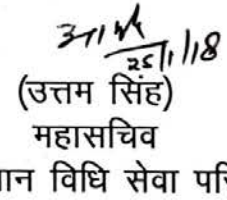 25/1/18
(उत्तम सिंह)
महासचिव
ान विधि सेवा परि